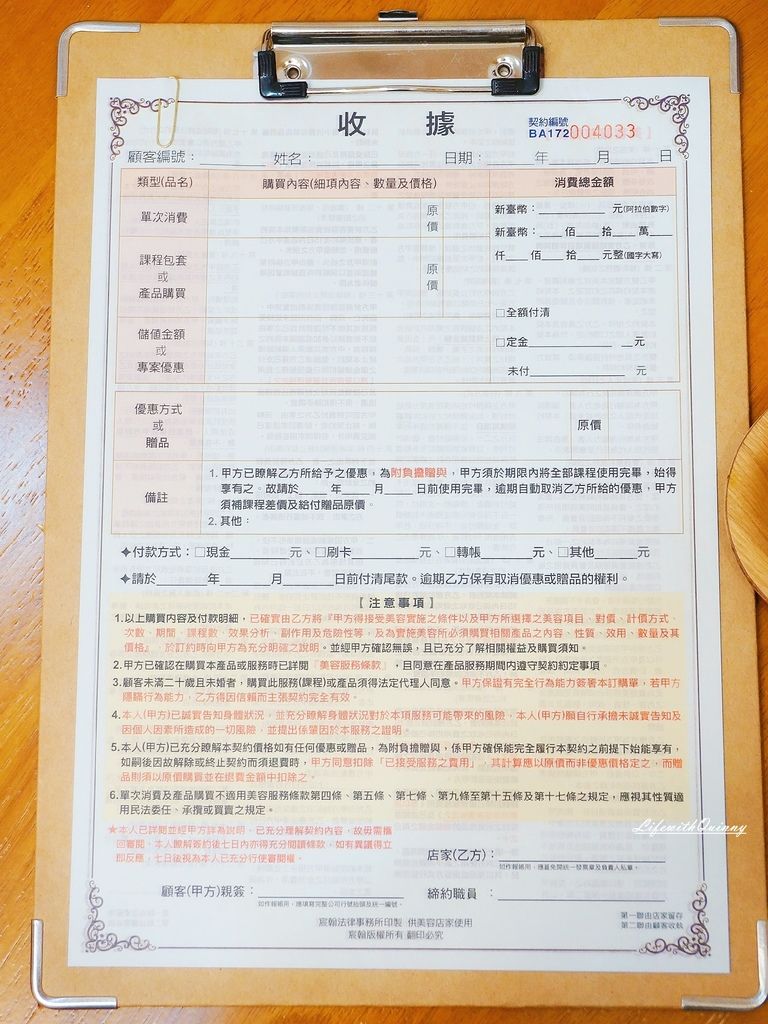 收據
契約編號
BA172004033
顧客編號： 姓名： 日期： 年 月 日
類型(品名) 購買內容(細項內容、數量及價格) 消費總金額
單次消費 原價
新臺幣： 元(阿拉伯數字)
新臺幣： 佰 拾 萬
課程包套或產品購買 原價
仟 佰 拾 元整(國字大寫)
儲值金額或專案優惠
□全額付清
□定金 元
未付 元
優惠方式或贈品 原價
備註
1. 甲方已瞭解乙方所給予之優惠，為附負擔贈與，甲方須於期限內將全部課程使用完畢，始得
享有之。故請於 年 月 日前使用完畢，逾期自動取消乙方所給的優惠，甲方
須補課程差價及給付贈品原價。
2. 其他：
✦付款方式：□現金 元、□刷卡 元、□轉帳 元、□其他 元
✦請於 年 月 日前付清尾款。逾期乙方保有取消優惠或贈品的權利。
【注意事項】
1.以上購買內容及付款明細，已確實由乙方將『甲方得接受美容實施之條件以及甲方所選擇之美容項目、對價、計價方式、
次數、期間、課程數、效果分析、副作用及危險性等，及為實施美容所必須購買相關產品之內容、性質、效用、數量及其
價格』，於訂約時向甲方為充分明確之說明。並經甲方確認無誤，且已充分了解相關權益及購買須知。
2.甲方已確認在購買本產品或服務時已詳閱「美容服務條款」，且同意在產品服務期間內遵守契約約定事項。
3.顧客未滿二十歲且未婚者，購買此服務(課程)或產品須得法定代理人同意。甲方保證有完全行為能力簽署本訂購單，若甲方
隱瞞行為能力，乙方得因信賴而主張契約完全有效。
4.本人(甲方)已誠實告知身體狀況，並充分瞭解身體狀況對於本項服務可能帶來的風險，本人(甲方)願自行承擔未誠實告知及
因個人因素所造成的一切風險，並提出係肇因於本服務之證明。
5.本人(甲方)已充分瞭解本契約價格如有任何優惠或贈品，為附負擔贈與，係甲方確保能完全履行本契約之前提下始能享有，
如嗣後因故解除或終止契約而須退費時，甲方同意扣除「已接受服務之費用」，其計算應以原價而非優惠價格定之，而贈
品則須以原價購買並在退費金額中扣除之。
6.單次消費及產品購買不適用美容服務條款第四條、第五條、第七條、第九條至第十五條及第十七條之規定，應視其性質適
用民法委任、承攬或買賣之規定。
★本人已詳閱並經甲方詳為說明，已充分理解契約內容，故毋需攜
回審閱。本人瞭解簽約後七日內亦得充分閱讀條款，如有異議得立
即反應，七日後視為本人已充分行使審閱權。
店家(乙方)：
如作報帳用，應蓋免開統一發票章及負責人私章。
顧客(甲方)親簽：
如作報帳用，應填寫完整公司行號抬頭及統一編號。
締約職員：
宸翰法律事務所印製 供美容店家使用
宸翰版權所有 翻印必究
第一聯由店家留存
第二聯由顧客收執
LifewithQuinny